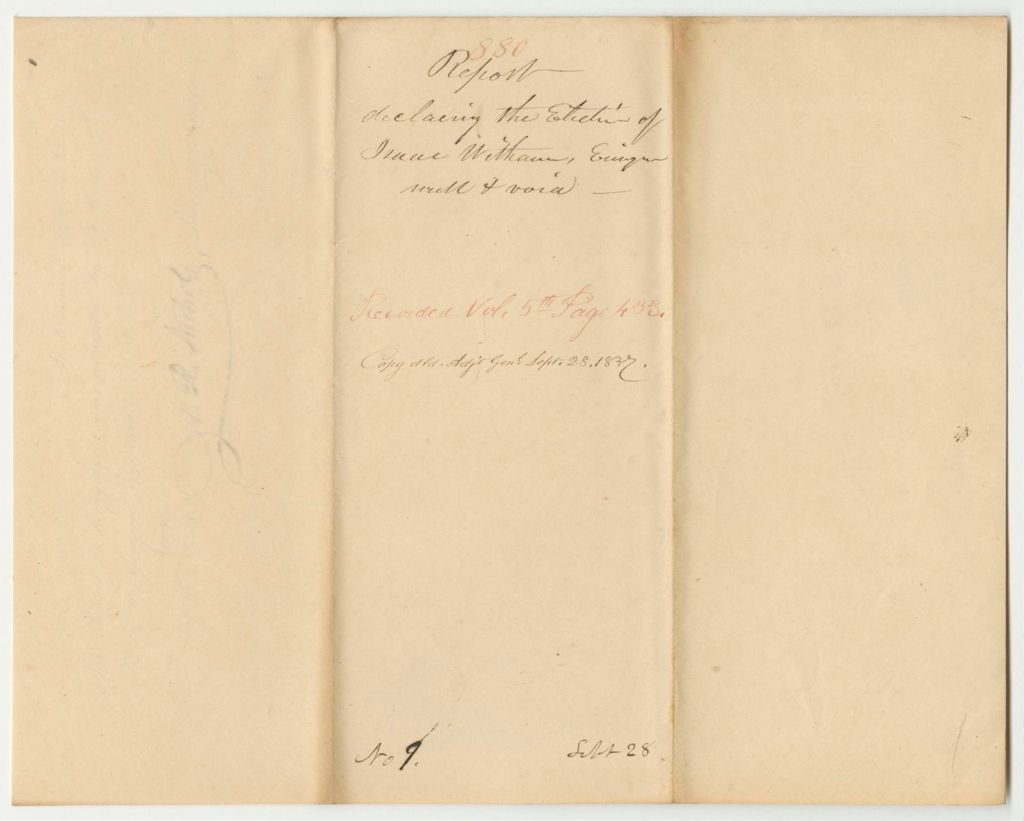 880
Report
declaring the Election of
Isaac Witham, Ensign
null & void
Recorded Vol. 5th Page 432.
Copy dld. Adjt Genl Sept. 28. 1837.
No 9.
Sept 28